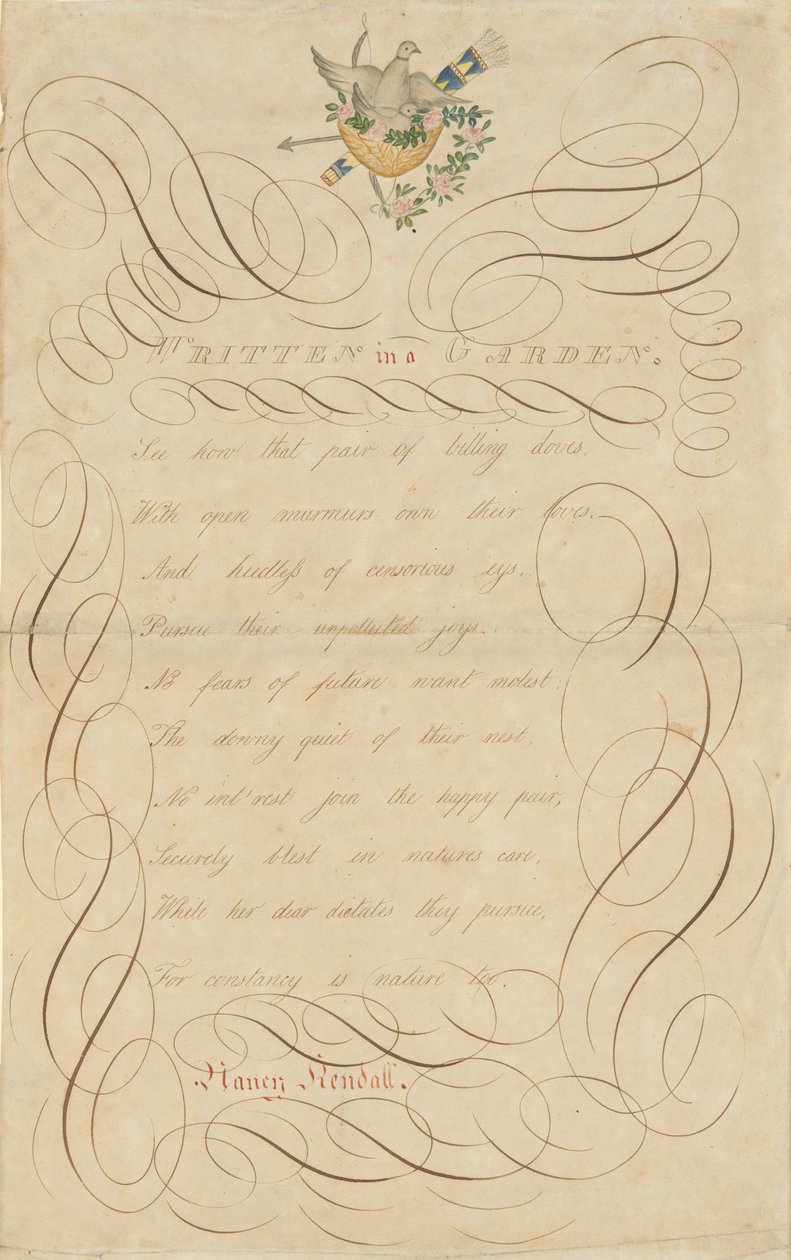 WRITTEN in a GARDEN.
See how that pair of billing doves,
With open murmurs own their loves.
And heedleſs of censorious eys,
Pursue their unpolluted joys.
No fears of future want molest;
The downy quiet of their nest;
No int'rest join the happy pair,
Securely blest in natures care,
While her dear dictates they pursue,
For constancy is nature too.
Nancy Kendall.